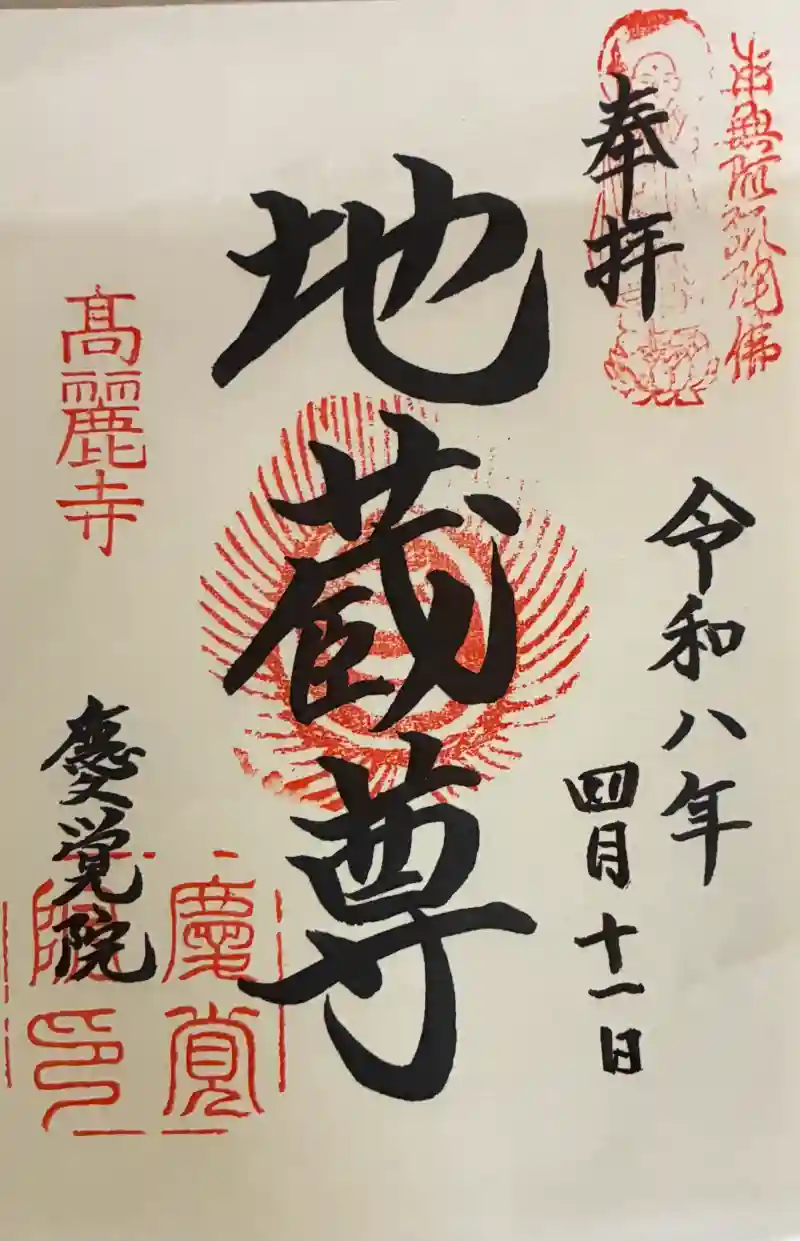 南無阿弥陀佛
奉拝
令和八年
四月十一日
地蔵尊
高麗寺
慶覚院
慶覚院印